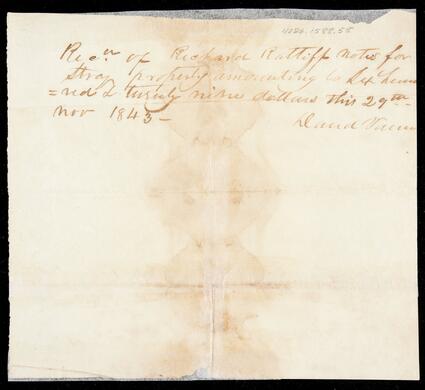 4026.1588.55
Recd of Richard Ratliff notes for
Stray property amounting to Six hund
=red & twenty nine dollars this 29th
nov 1843 —
David